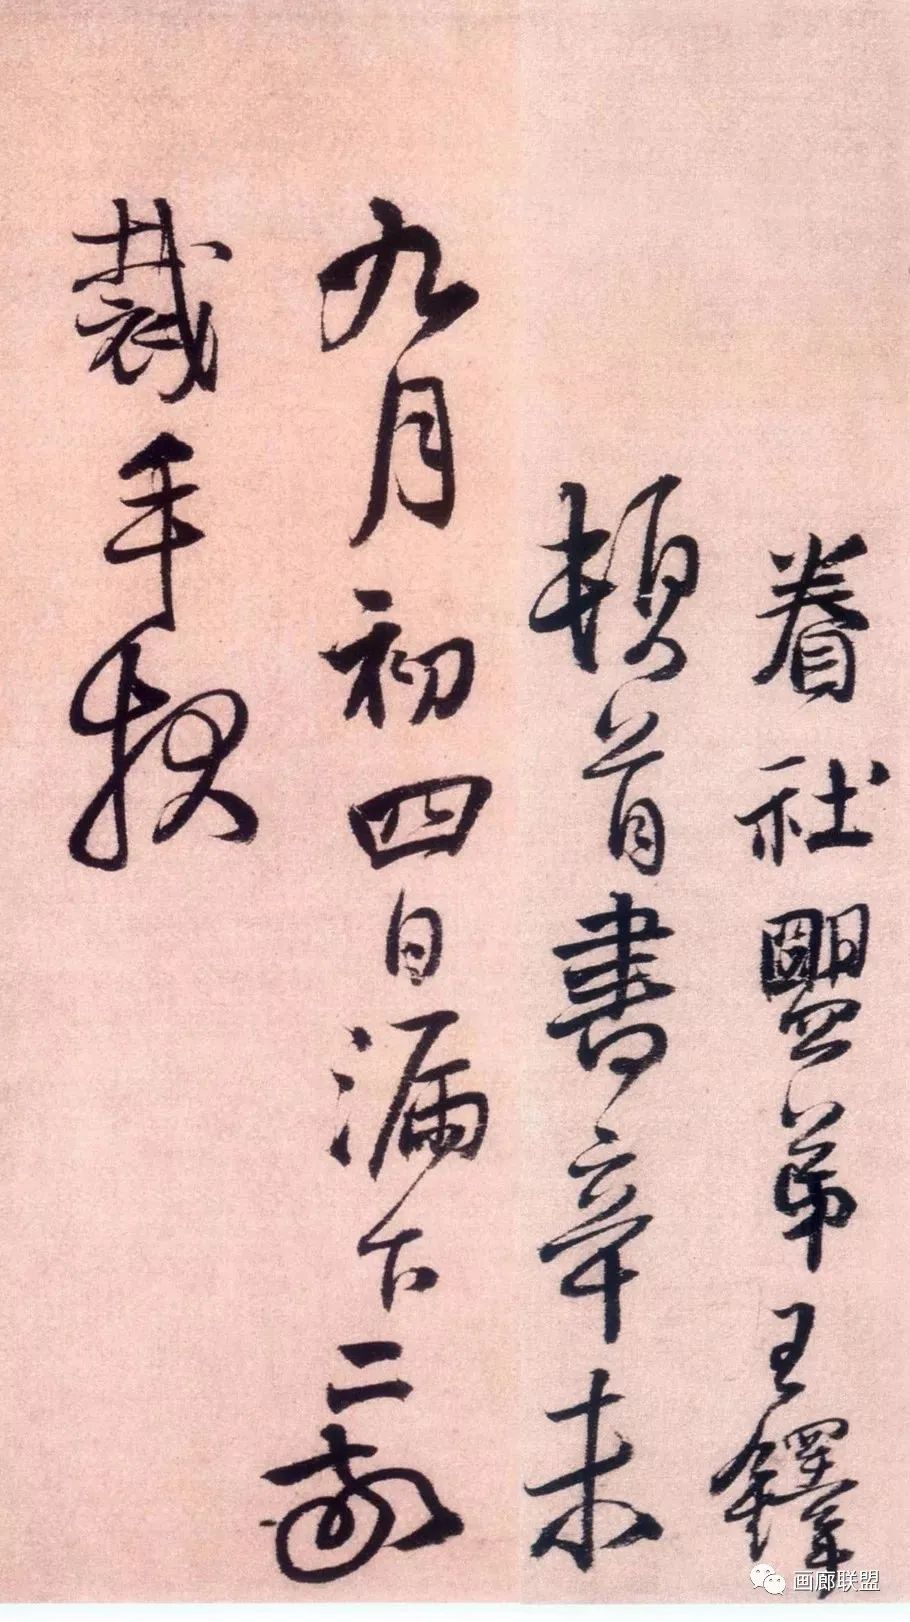 眷社盟弟王鐸
頓首書辛未
九月初四日漏下二鼓
裁手
画廊联盟